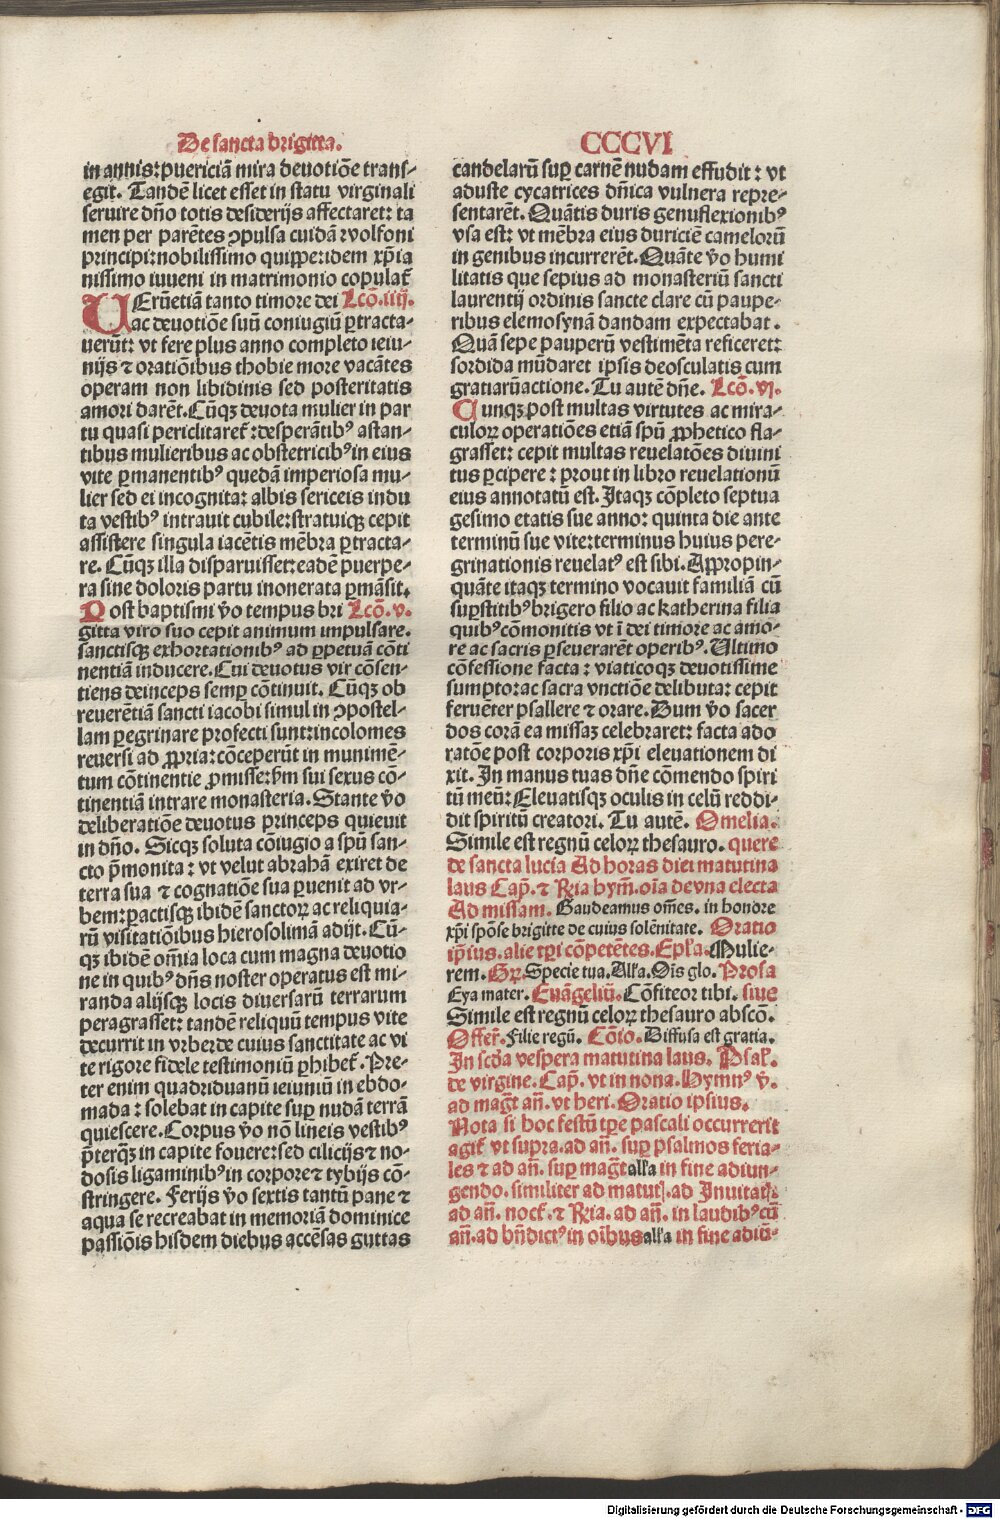 De sancta brigitta.
CCCVI
in annis: puericiā mira deuotiōe trans-
egit. Tandē licet esset in statu virginali
seruire dn̄o totis desiderijs affectaret: ta
men per parētes ꝯpulsa cuidā wolfoni
principi: nobilissimo quippe: idem xp̄ia
nissimo iuueni in matrimonio copulat᷑
UErūetiā tanto timore dei Lcō. iiij.
ac deuotiōe suū coniugiū ꝑtracta-
uerūt: vt fere plus anno completo ieiu-
nijs ⁊ oratiōibus thobie more vacātes
operam non libidinis sed posteritatis
amori darēt. Cūqꝫ deuota mulier in par
tu quasi periclitaret᷑: desperātibꝰ astan-
tibus mulieribus ac obstetricibꝰ in eius
vite ꝑmanentibꝰ quedā imperiosa mu-
lier sed ei incognita: albis sericeis indu
ta vestibꝰ intrauit cubile: stratuiqꝫ cepit
assistere singula iacētis mēbra ꝑtracta-
re. Cūqꝫ illa disparuisset: eadē puerpe-
ra sine doloris partu inonerata ꝑmāsit.
Post baptismi v̄o tempus bri Lcō. v.
gitta viro suo cepit animum impulsare.
sanctisqꝫ exhortationibꝰ ad ꝑpetuā cōti
nentiā inducere. Cui deuotus vir cōsen-
tiens deinceps semꝑ cōtinuit. Cūqꝫ ob
reuerētiā sancti iacobi simul in ꝯpostel-
lam ꝑegrinare profecti sunt: incolomes
reuersi ad ꝓpria: cōceperūt in munimē-
tum cōtinentie ꝓmisse: ẜm sui sexus cō-
tinentiā intrare monasteria. Stante v̄o
deliberatiōe deuotus princeps quieuit
in dn̄o. Sicqꝫ soluta cōiugio a spū san-
cto p̄monita: vt velut abrahā exiret de
terra sua ⁊ cognatiōe sua ꝑuenit ad vr-
bem: ꝑactisqꝫ ibidē sanctoꝝ ac reliquia-
rū visitatiōibus hierosolimā adijt. Cū-
qꝫ ibidē om̄ia loca cum magna deuotio
ne in quibꝰ dn̄s noster operatus est mi-
randa alijsqꝫ locis diuersarū terrarum
peragrasset: tandē reliquū tempus vite
decurrit in vrbe: de cuius sanctitate ac vi
te rigore fidele testimoniū ꝑhibet᷑. Pre-
ter enim quadriduanū ieiuniū in ebdo-
mada: solebat in capite suꝑ nudā terrā
quiescere. Corpus v̄o nō lineis vestibꝰ
p̄terqꝫ in capite fouere: sed cilicijs ⁊ no-
dosis ligaminibꝰ in corpore ⁊ tybijs cō-
stringere. Ferijs v̄o sextis tantū pane ⁊
aqua se recreabat in memoriā dominice
passiōis hisdem diebus accēsas guttas
candelarū suꝑ carnē nudam effudit: vt
aduste cycatrices dn̄ica vulnera repre-
sentarēt. Quātis duris genuflexionibꝰ
vsa est: vt mēbra eius duriciē camelorū
in genibus incurrerēt. Quāte v̄o humi
litatis que sepius ad monasteriū sancti
laurentij ordinis sancte clare cū paupe-
ribus elemosynā dandam expectabat.
Quā sepe pauperū vestimēta reficeret:
sordida mūdaret ipsis deosculatis cum
gratiarūactione. Tu autē dn̄e. Lcō. vj.
Cunqꝫ post multas virtutes ac mira-
culoꝝ operatiōes etiā spū ꝓphetico fla-
grasset: cepit multas reuelatōes diuini
tus ꝑcipere: prout in libro reuelationū
eius annotatū est. Itaqꝫ cōpleto septua
gesimo etatis sue anno: quinta die ante
terminū sue vite: terminus huius pere-
grinationis reuelatꝰ est sibi. Appropin-
quāte itaqꝫ termino vocauit familiā cū
suꝑstitibꝰ brigero filio ac katherina filia
quibꝰ cōmonitis vt ī dei timore ac amo-
re ac sacris ꝑseuerarēt operibꝰ. Ultimo
cōfessione facta: viaticoqꝫ deuotissime
sumpto: ac sacra vnctiōe delibuta: cepit
feruēter psallere ⁊ orare. Dum v̄o sacer
dos corā ea missaꝫ celebraret: facta ado
ratōe post corporis xp̄i eleuationem di
xit. In manus tuas dn̄e cōmendo spiri
tū meū: Eleuatisqꝫ oculis in celū reddi-
dit spiritū creatori. Tu autē. Omelia.
Simile est regnū celoꝝ thesauro. quere
de sancta lucia Ad horas diei matutina
laus Cap̄. ⁊ R̄ria hym̄. oīa de vna electa
Ad missam. Gaudeamus om̄es. in honore
xp̄i spōse brigitte de cuius solēnitate. Oratio
ip̄ius. alie tꝑi cōpetētes. Epl̄a. Mulie-
rem. Gꝝ. Specie tua. All̄a. Oīs glo. Prosa
Eya mater. Euāgeliū. Cōfiteor tibi. siue
Simile est regnū celoꝝ thesauro abscō.
Offer̄. Filie regū. Cōio. Diffusa est gratia.
In scd̄a vespera matutina laus. Psal̄.
de virgine. Cap̄. vt in nona. Hymnꝰ v̄.
ad maḡt an̄. vt heri. Oratio ipsius.
Nota si hoc festū tꝑe pascali occurrerit
agit᷑ vt supra. ad an̄. suꝑ psalmos feria-
les ⁊ ad an̄. suꝑ maḡt all̄a in fine adiun-
gendo. similiter ad matut̄. ad Inuitat̄.
ad an̄. noct̄. ⁊ R̄ria. ad an̄. in laudibꝰ cū
an̄. ad bn̄dictꝰ in oībus all̄a in fine adiū-
Digitalisierung gefördert durch die Deutsche Forschungsgemeinschaft - DFG